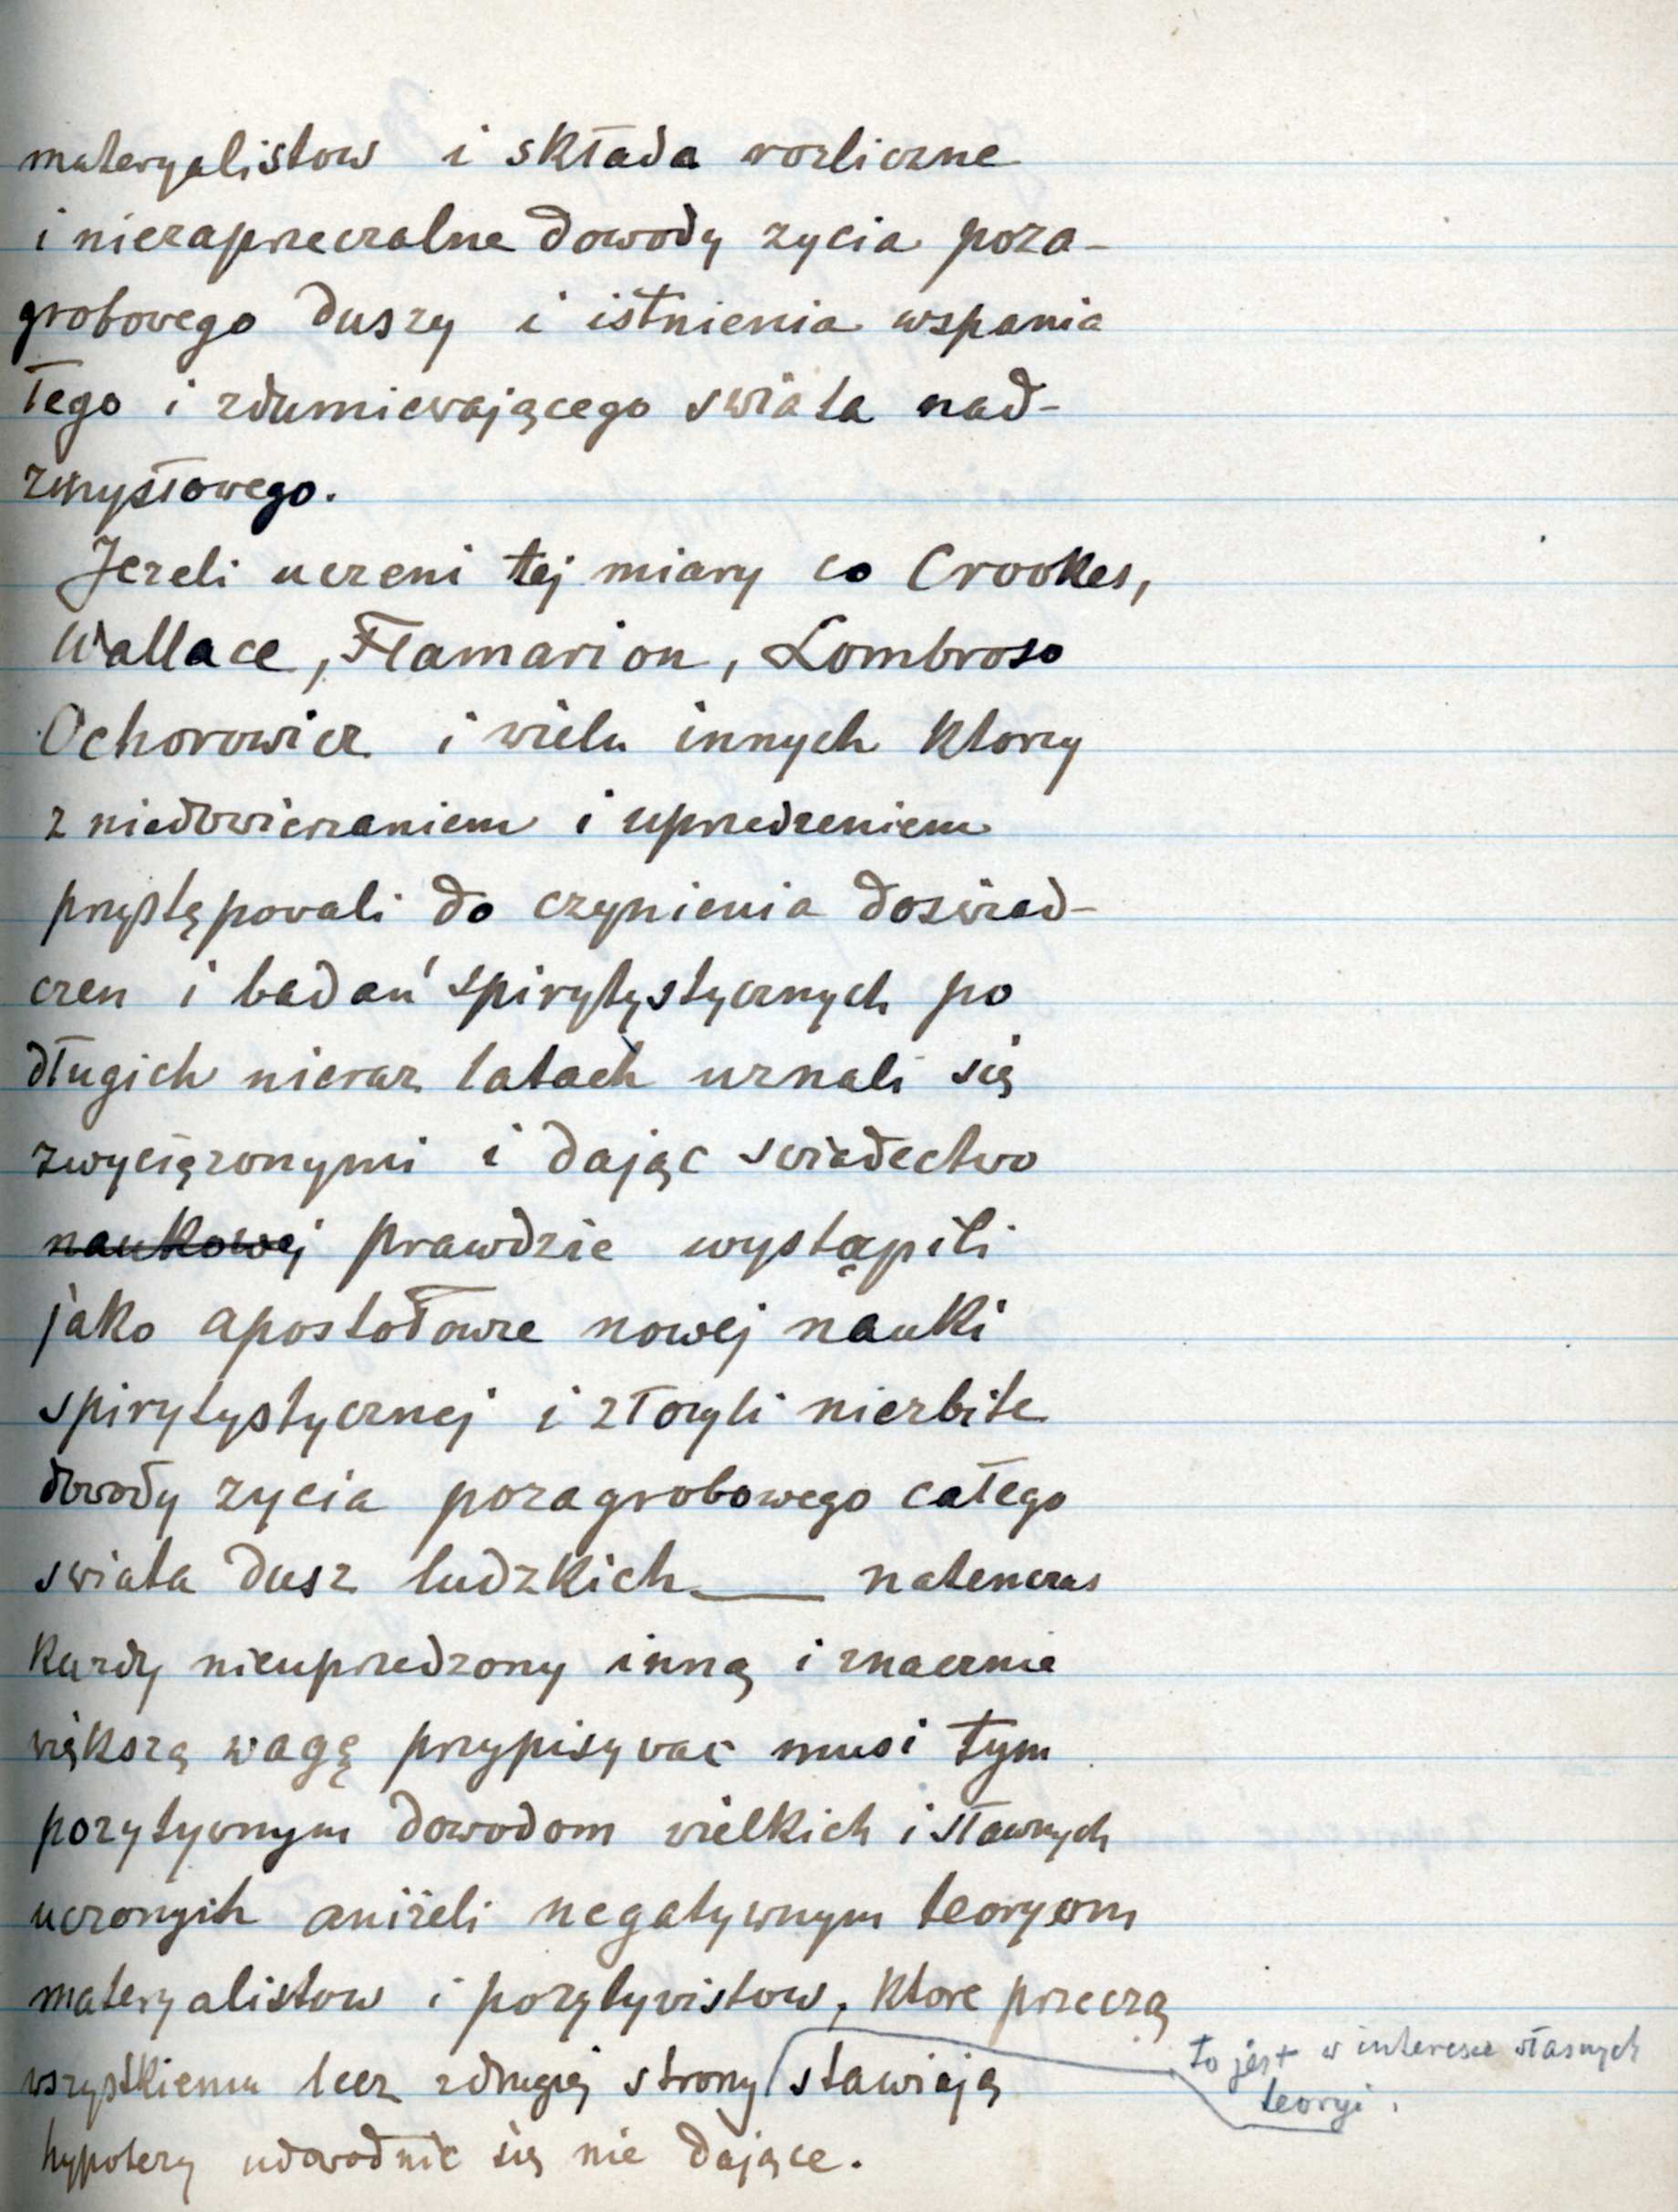 materyalistow i składa rozliczne
i niezaprzeczalne dowody zycia poza-
grobowego duszy i istnienia wspania
łego i zdumiewającego swiata nad-
zmysłowego.
Jezeli uczeni tej miary co Crookes,
Wallace, Flamarion, Lombroso
Ochorowicz i wielu innych ktorzy
z niedowierzaniem i uprzedzeniem
przystępowali do czynienia doswiad-
czen i badań spirytystycznych po
długich nieraz latach uznali się
zwycięzonymi i dając swiadectwo
naukowej prawdzie wystąpili
jako apostołowie nowej nauki
spirytystycznej i złozyli niezbite
dowody zycia pozagrobowego całego
swiata dusz ludzkich — natenczas
kazdy nieuprzedzony inną i znacznie
większą wagę przypisywac musi tym
pozytywnym dowodom wielkich i sławnych
uczonych aniżeli negatywnym teoryom
materyalistow i pozytywistow, ktore przeczą
wszystkiemu lecz zdrugiej strony stawiają
to jest w interesie własnych
teoryi.
hypotezy udowodnic się nie dające.